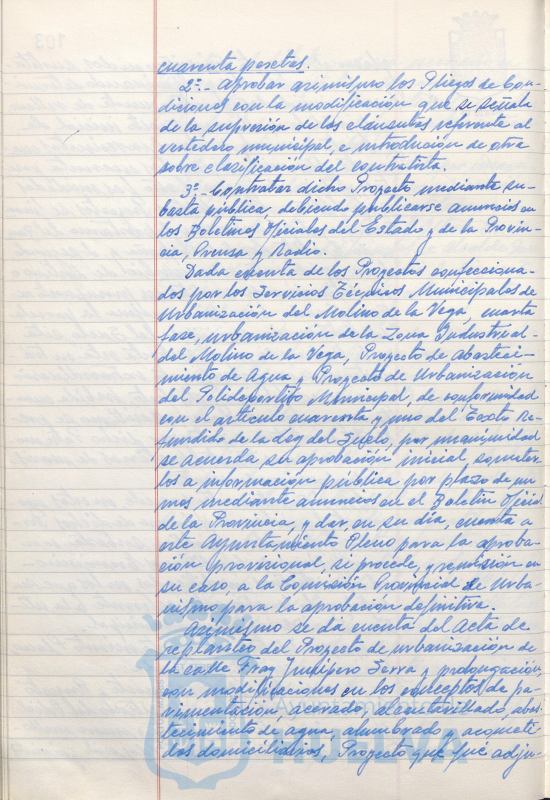 cuarenta pesetas.
2º.- Aprobar asimismo los Pliegos de Con-
diciones con la modificación que se señala
de la supresión de las cláusulas referente al
vertedero municipal, e introducción de otra
sobre clasificación del contratista.
3º.- Contratar dicho Proyecto mediante su-
basta pública, debiendo publicarse anuncios en
los Boletines Oficiales del Estado y de la Provin-
cia, Prensa y Radio.
Dada cuenta de los Proyectos confecciona-
dos por los Servicios Técnicos Municipales de
Urbanización del Molino de la Vega, cuarta
fase, urbanización de la Zona Industrial
del Molino de la Vega, Proyecto de abasteci-
miento de Agua y Proyecto de Urbanización
del Polideportivo Municipal, de conformidad
con el artículo cuarenta y uno del Texto Re-
fundido de la Ley del Suelo, por unanimidad
se acuerda su aprobación inicial, someter-
los a información pública por plazo de un
mes mediante anuncios en el Boletín Oficial
de la Provincia, y dar, en su día, cuenta a
este Ayuntamiento Pleno para la aproba-
ción provisional, si procede, y remisión en
su caso, a la Comisión Provincial de Urba-
nismo para la aprobación definitiva.
Asimismo se da cuenta del Acta de
replanteo del Proyecto de urbanización de
la calle Fray Junípero Serra y prolongación,
con modificaciones en los conceptos de pa-
vimentación, acerado, alcantarillado, abas-
tecimiento de agua, alumbrado y acometi-
das domiciliarias, Proyecto que fué adju-
HUELVA